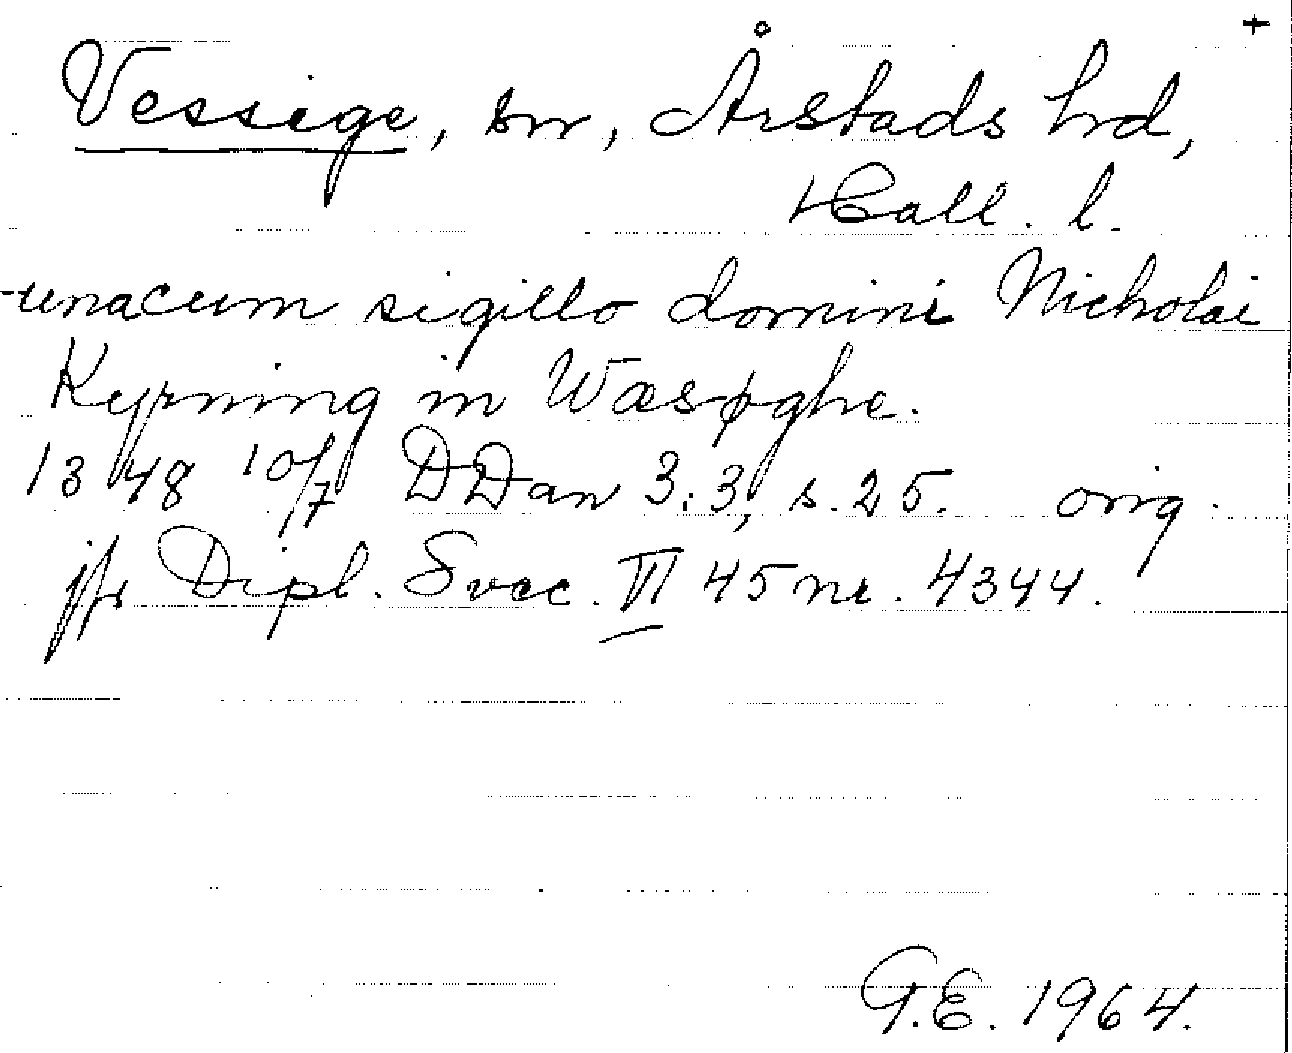 +
Vessige, sn, Årstads hd,
Hall. l.
unacum sigillo domini Nicholai
Kyrning in Wæsøghe.
1348 10/7 DDan 3:3, s. 25. orig.
jfr Dipl. Svec. VI 45 nr. 4344.
G.E. 1964.